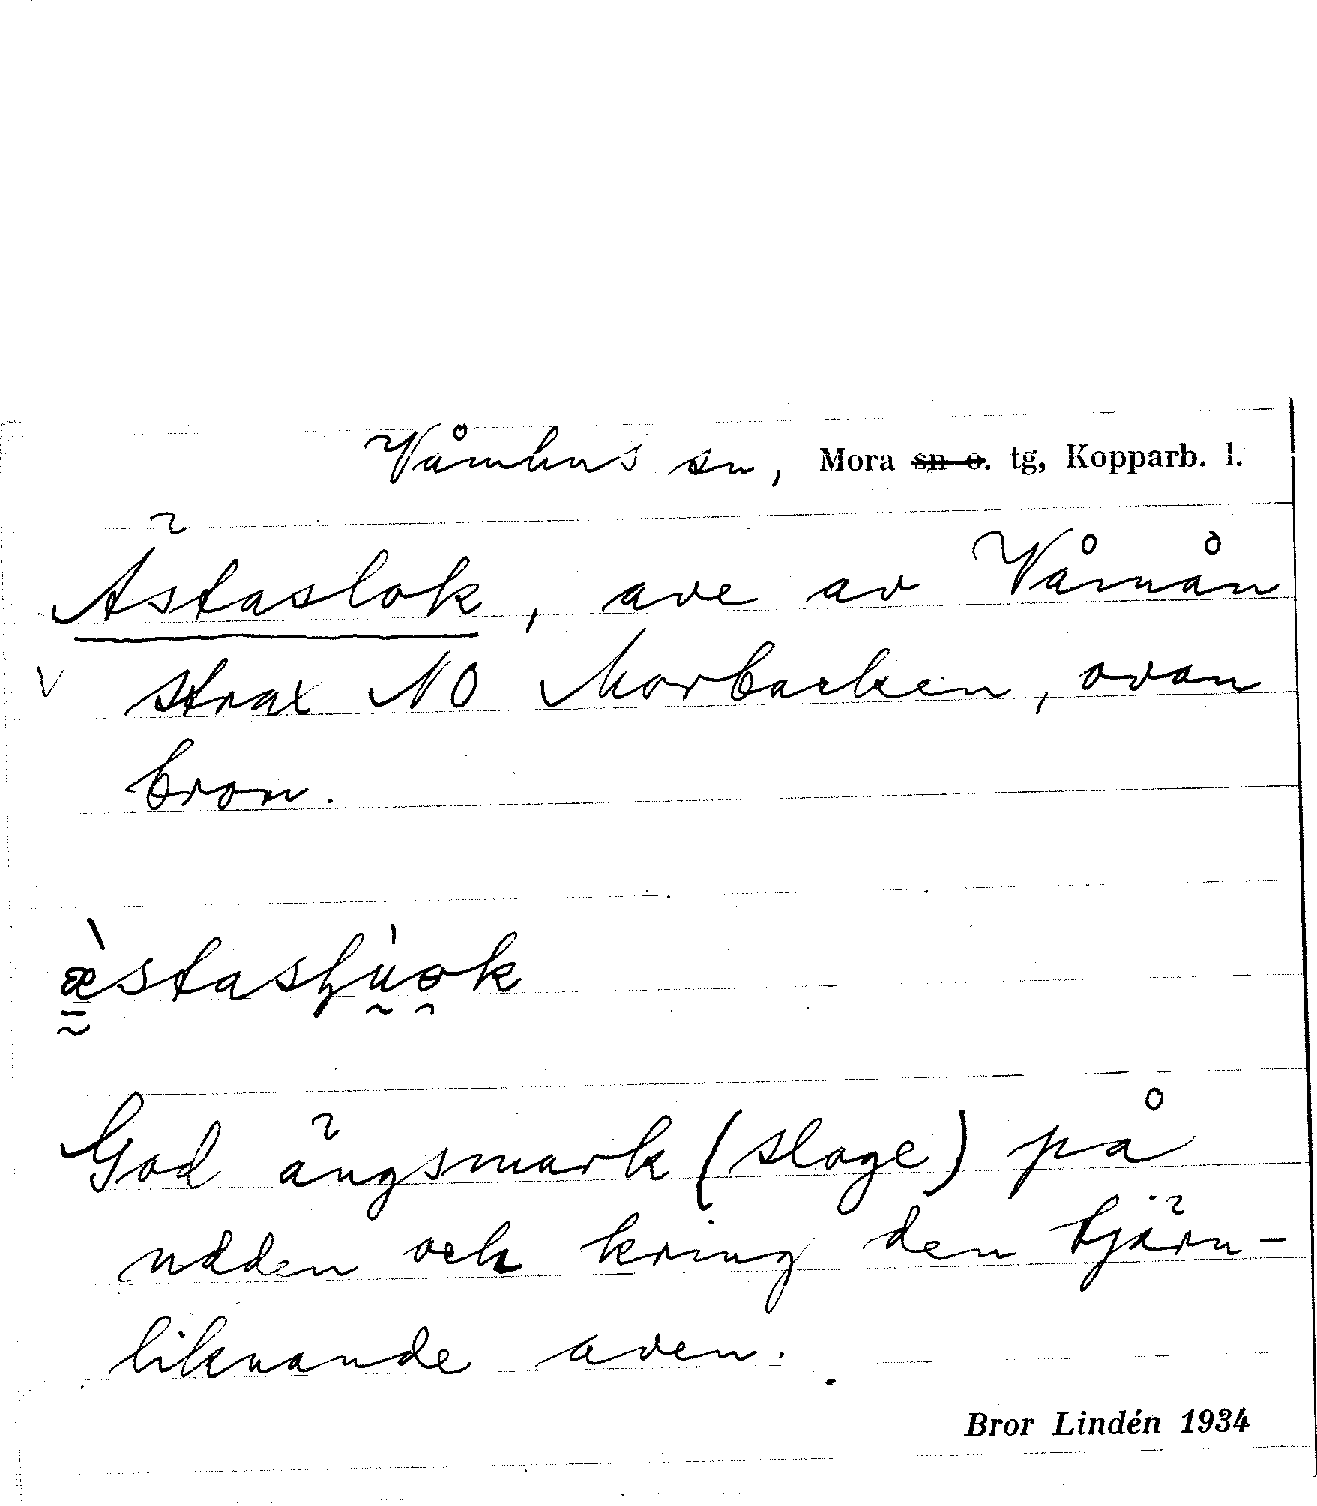 Våmhus sn, Mora sn o. tg, Kopparb. l.
Ästaslok, ave av Våmån
strax NO Morbacken, ovan
bron.
God ängsmark (sloge) på
udden och kring den tjärn-
liknande aven.
Bror Lindén 1934